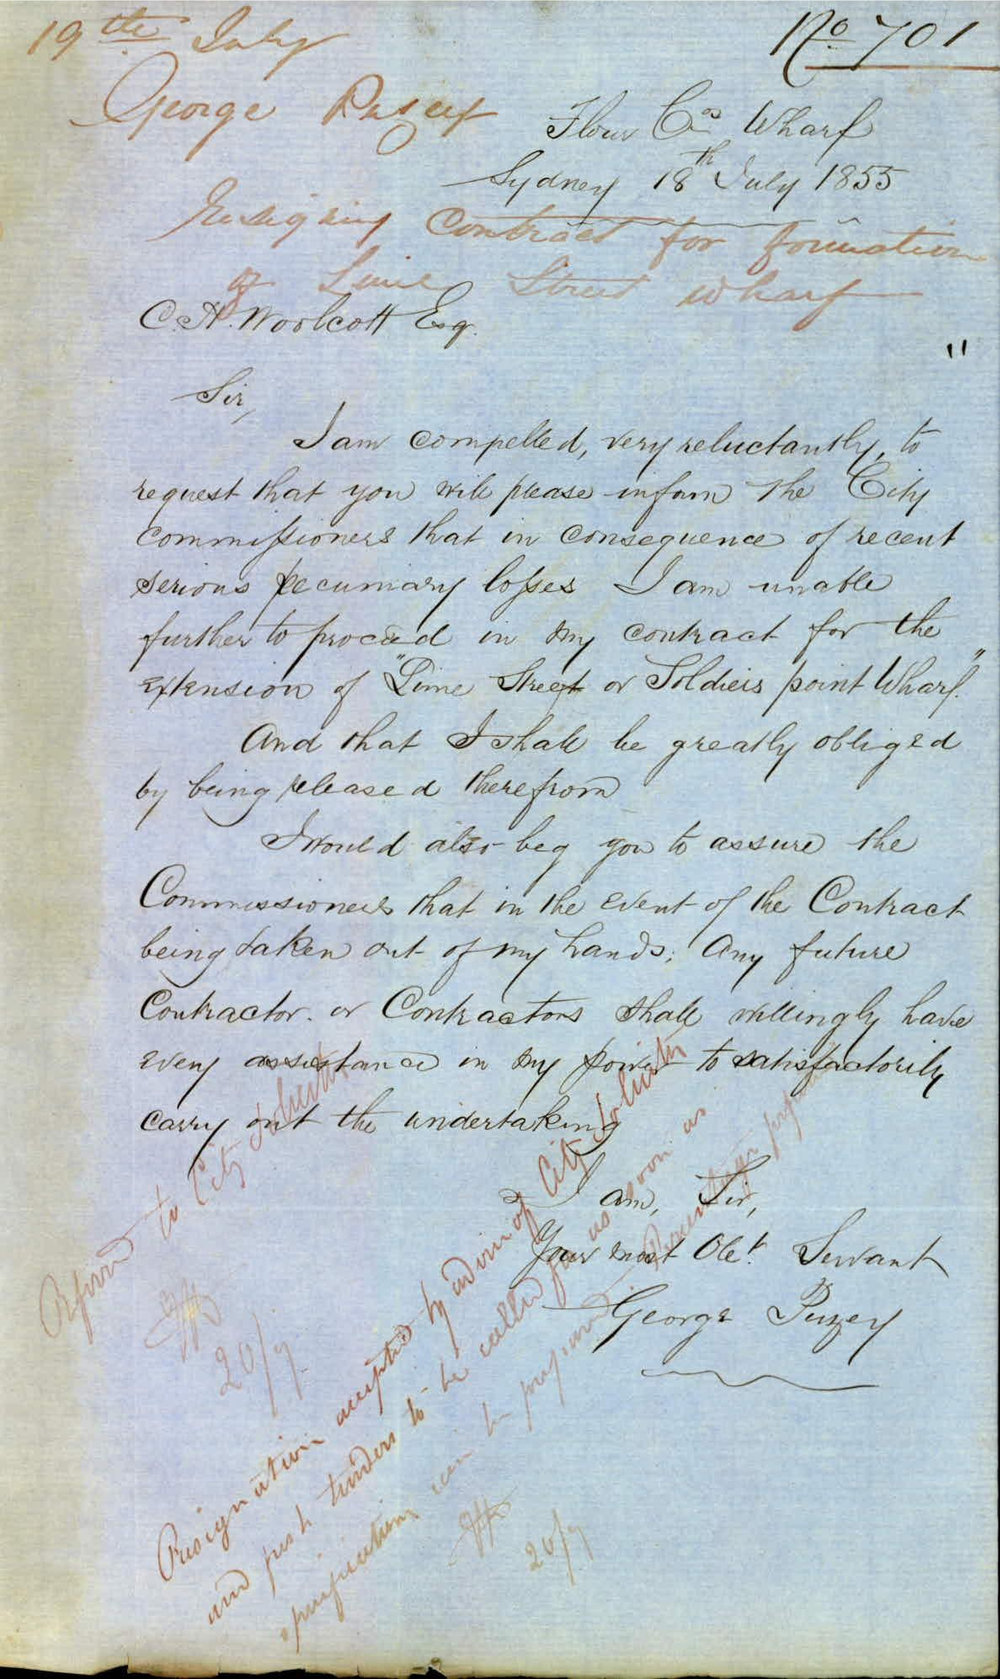 19th July
No 701
George Pusey
Flour Cos Wharf
Sydney 18th July 1855
Resigning Contract for formation
of Lime Street Wharf
C. H. Woolcott Esq.
"
Sir,
I am compelled, very reluctantly, to
request that you will please inform the City
Commissioners that in consequence of recent
serious pecuniary losses I am unable
further to proceed in my contract for the
extension of "Lime Street or Soldiers point Wharf."
And that I shall be greatly obliged
by being released therefrom
I would also beg you to assure the
Commissioners that in the event of the Contract
being taken out of my hands; Any future
Contractor. or Contractors shall willingly have
every assistance in my power to satisfactorily
carry out the undertaking
I am, Sir,
Your most Obt. Servant
George Puzey
Referred to City Solicitor
20/7
Resignation accepted by advice of City Solicitor
and fresh tenders to be called for as soon as
specifications can be prepared
20/7